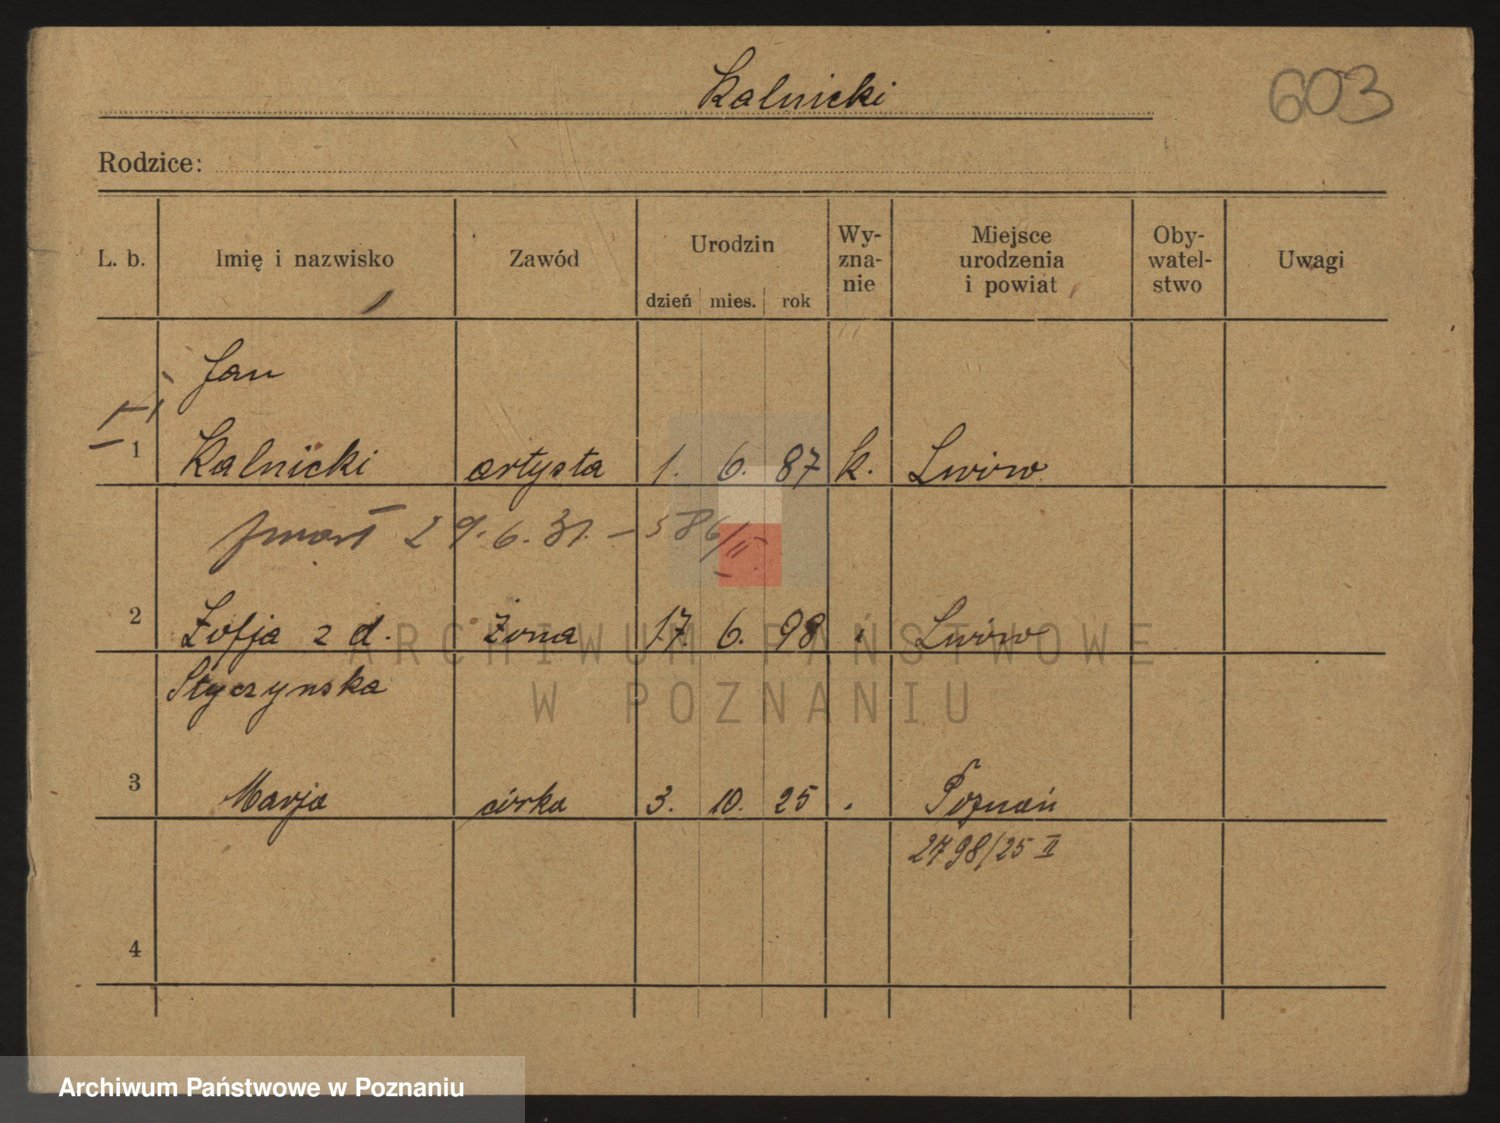 Kalnicki
603
Rodzice:
L. b. Imię i nazwisko Zawód Urodzin dzień mies. rok Wy-zna-nie Miejsce urodzenia i powiat Oby-watel-stwo Uwagi
Jan
1 Kalnicki artysta 1. 6. 87 k. Lwów
zmarł 29.6.31. – 586/II
2 Zofja z d. żona 17. 6. 98 Lwów
Styczynska
3 Marja córka 3. 10. 25 Poznań
2798/25 II
4
ARCHIWUM PAŃSTWOWE
W POZNANIU
Archiwum Państwowe w Poznaniu